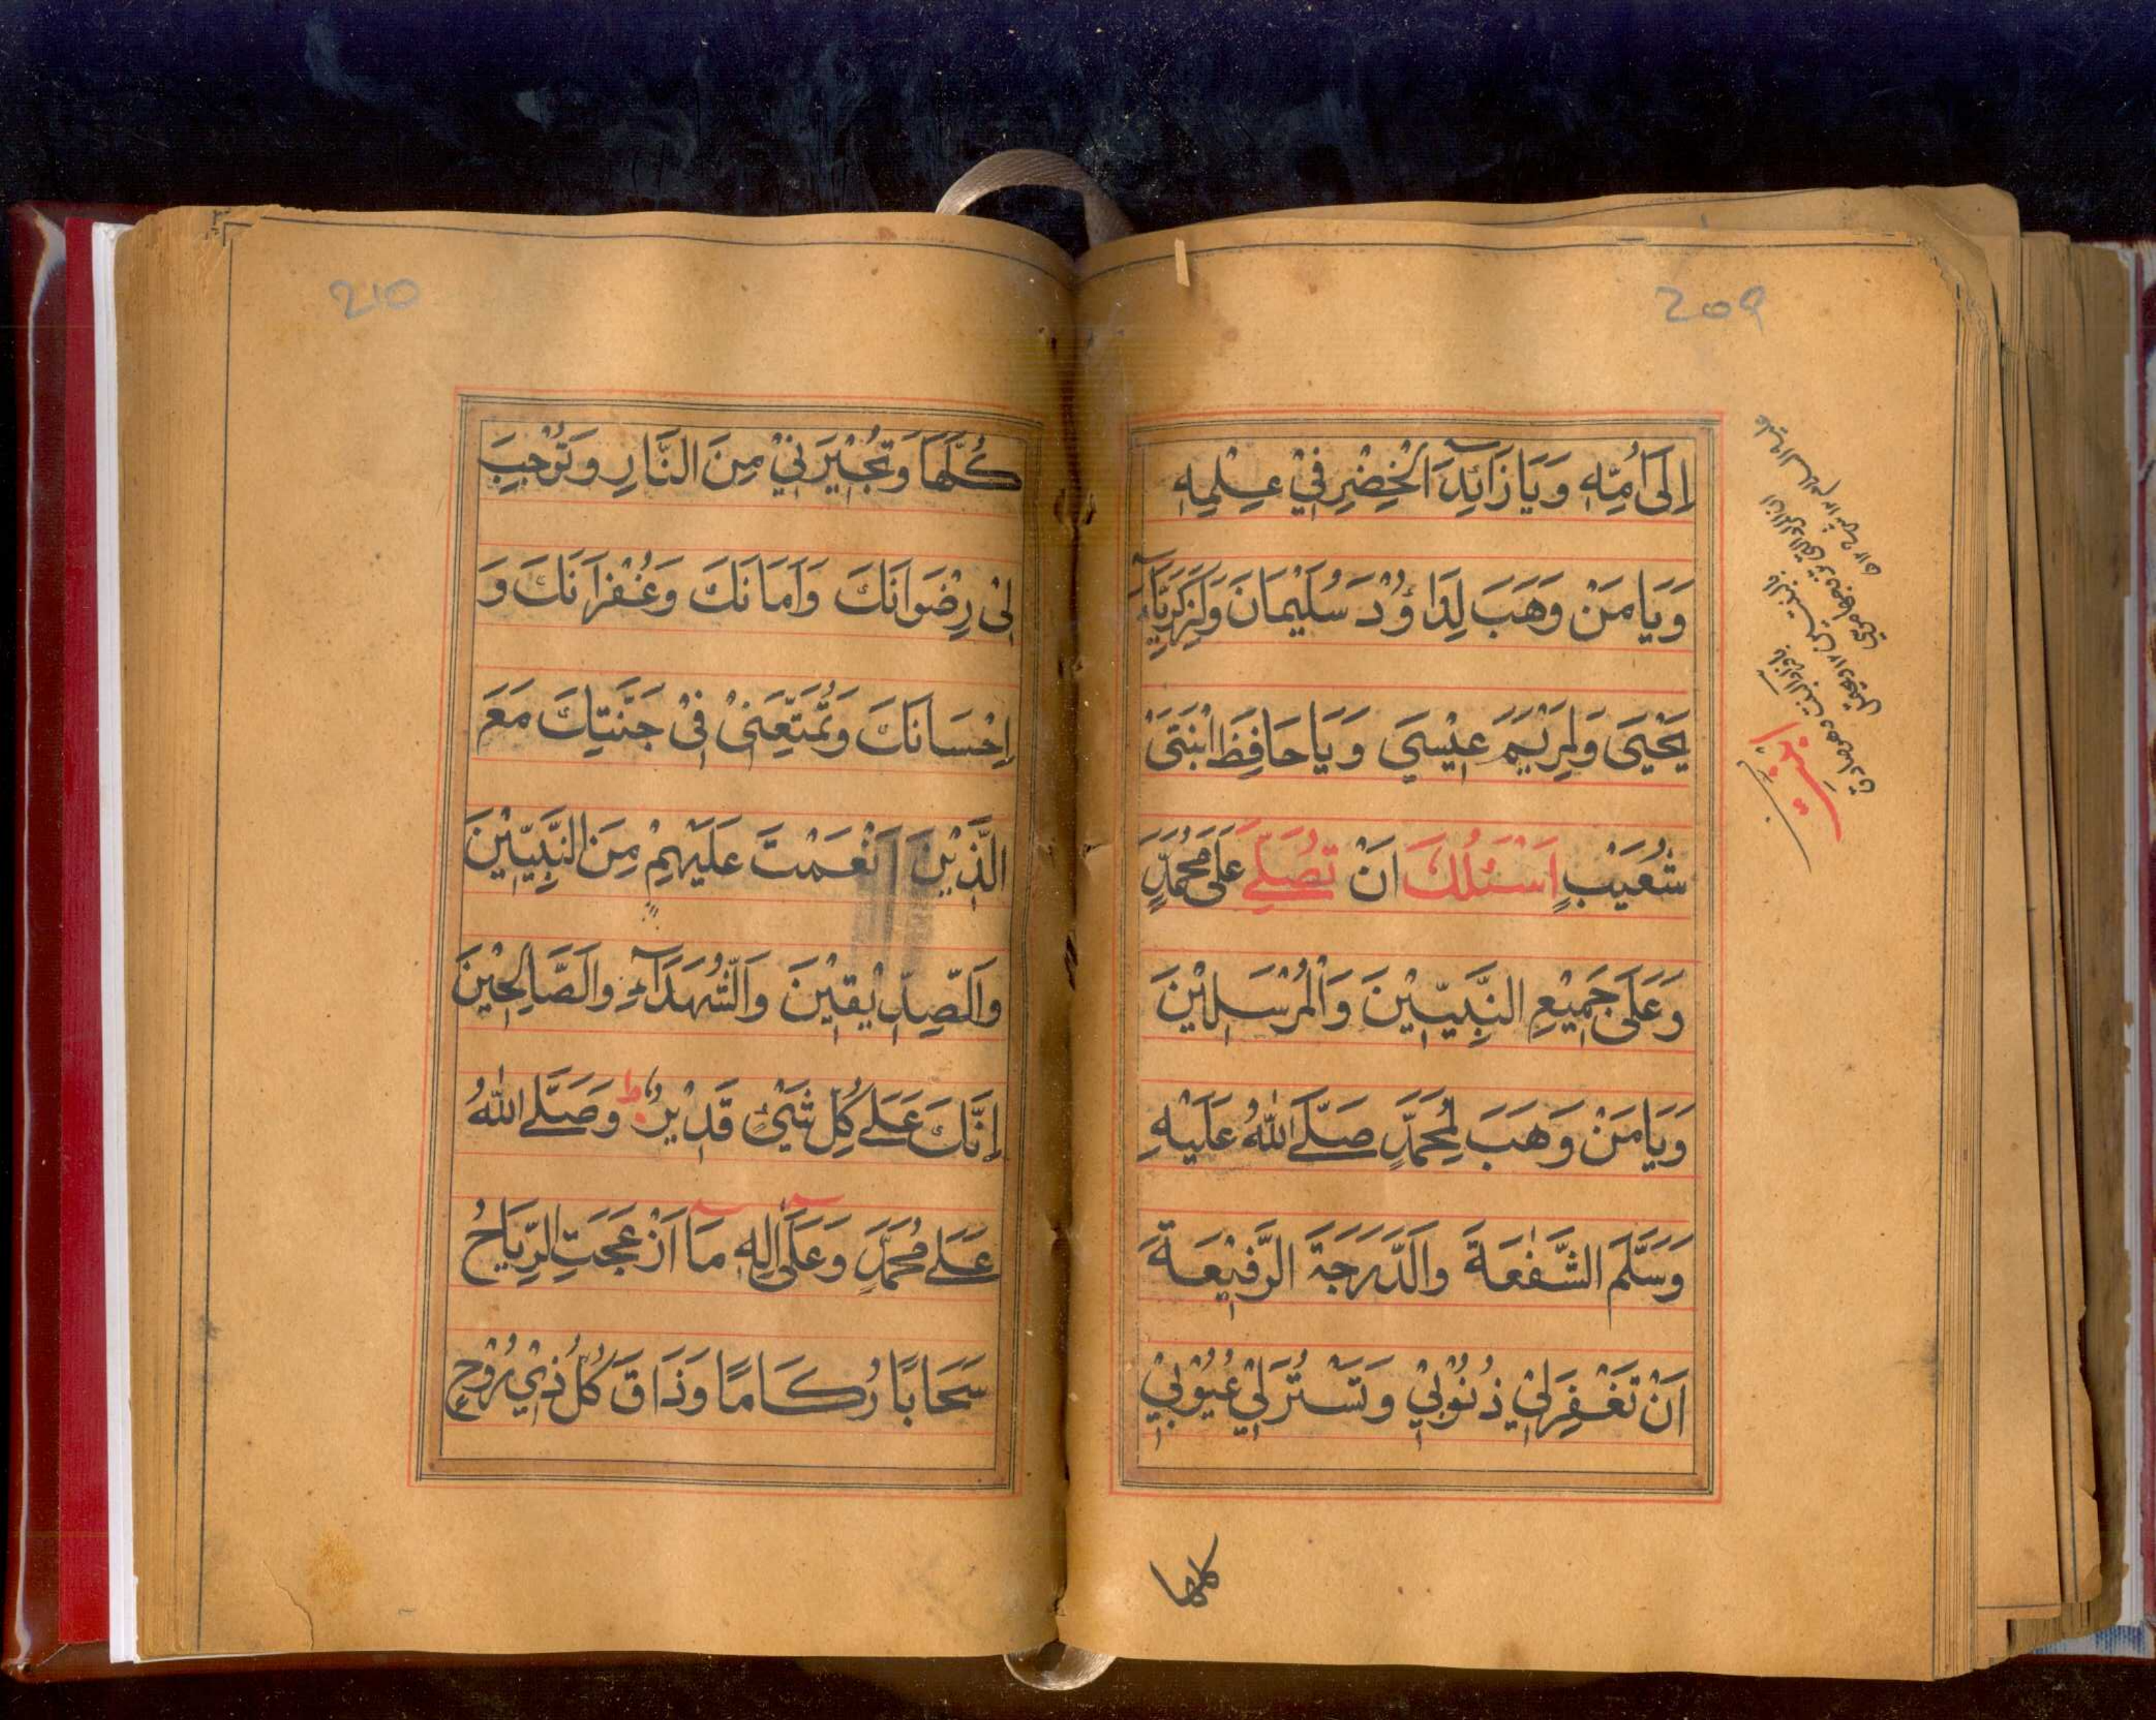 209
اِلَى اُمِّهٖ وَيَا زَآئِدَ الْخِضْرِ فِيْ عِلْمِهٖ
وَيَا مَنْ وَهَبَ لِدَاو۫ٗدَ سُلَيْمَانَ وَلِزَكَرِيَّآءَ
يَحْيٰى وَلِمَرْيَمَ عِيْسٰي وَيَا حَافِظَ ابْنَتَيْ
شُعَيْبٍ اَسْئَلُكَ اَنْ تُصَلِّے عَلٰى مُحَمَّدٍ
وَعَلٰى جَمِيْعِ النَّبِيّٖيْنَ وَالْمُرْسَلِيْنَ
وَيَا مَنْ وَهَبَ لِمُحَمَّدٍ صَلَّے اللّٰهُ عَلَيْهِ
وَسَلَّمَ الشَّفٰعَةَ وَالدَّرَجَةَ الرَّفِيْعَةَ
اَنْ تَغْفِرَلِيْ ذُنُوْبِيْ وَتَسْتُرَلِيْ عُيُوْبِيْ
كلها
210
كُلَّهَا وَتُجِيْرَنِيْ مِنَ النَّارِ وَتُوْجِبَ
لِيْ رِضْوَانَكَ وَاَمَانَكَ وَغُفْرَانَكَ وَ
اِحْسَانَكَ وَتُمَتِّعَنِيْ فِيْ جَنَّتِكَ مَعَ
الَّذِيْنَ اَنْعَمْتَ عَلَيْهِمْ مِنَ النَّبِيّٖيْنَ
وَالصِّدِّيْقِيْنَ وَالشُّهَدَآءِ وَالصَّالِحِيْنَ
اِنَّكَ عَلٰے كُلِّ شَيْءٍ قَدِيْرٌ ط وَصَلَّے اللّٰهُ
عَلٰے مُحَمَّدٍ وَعَلٰٓى اٰلِهٖ مَآ اَزْعَجَتِ الرِّيَاحُ
سَحَابًا رُكَامًا وَذَاقَ كُلُّ ذِيْ رُوْحٍ